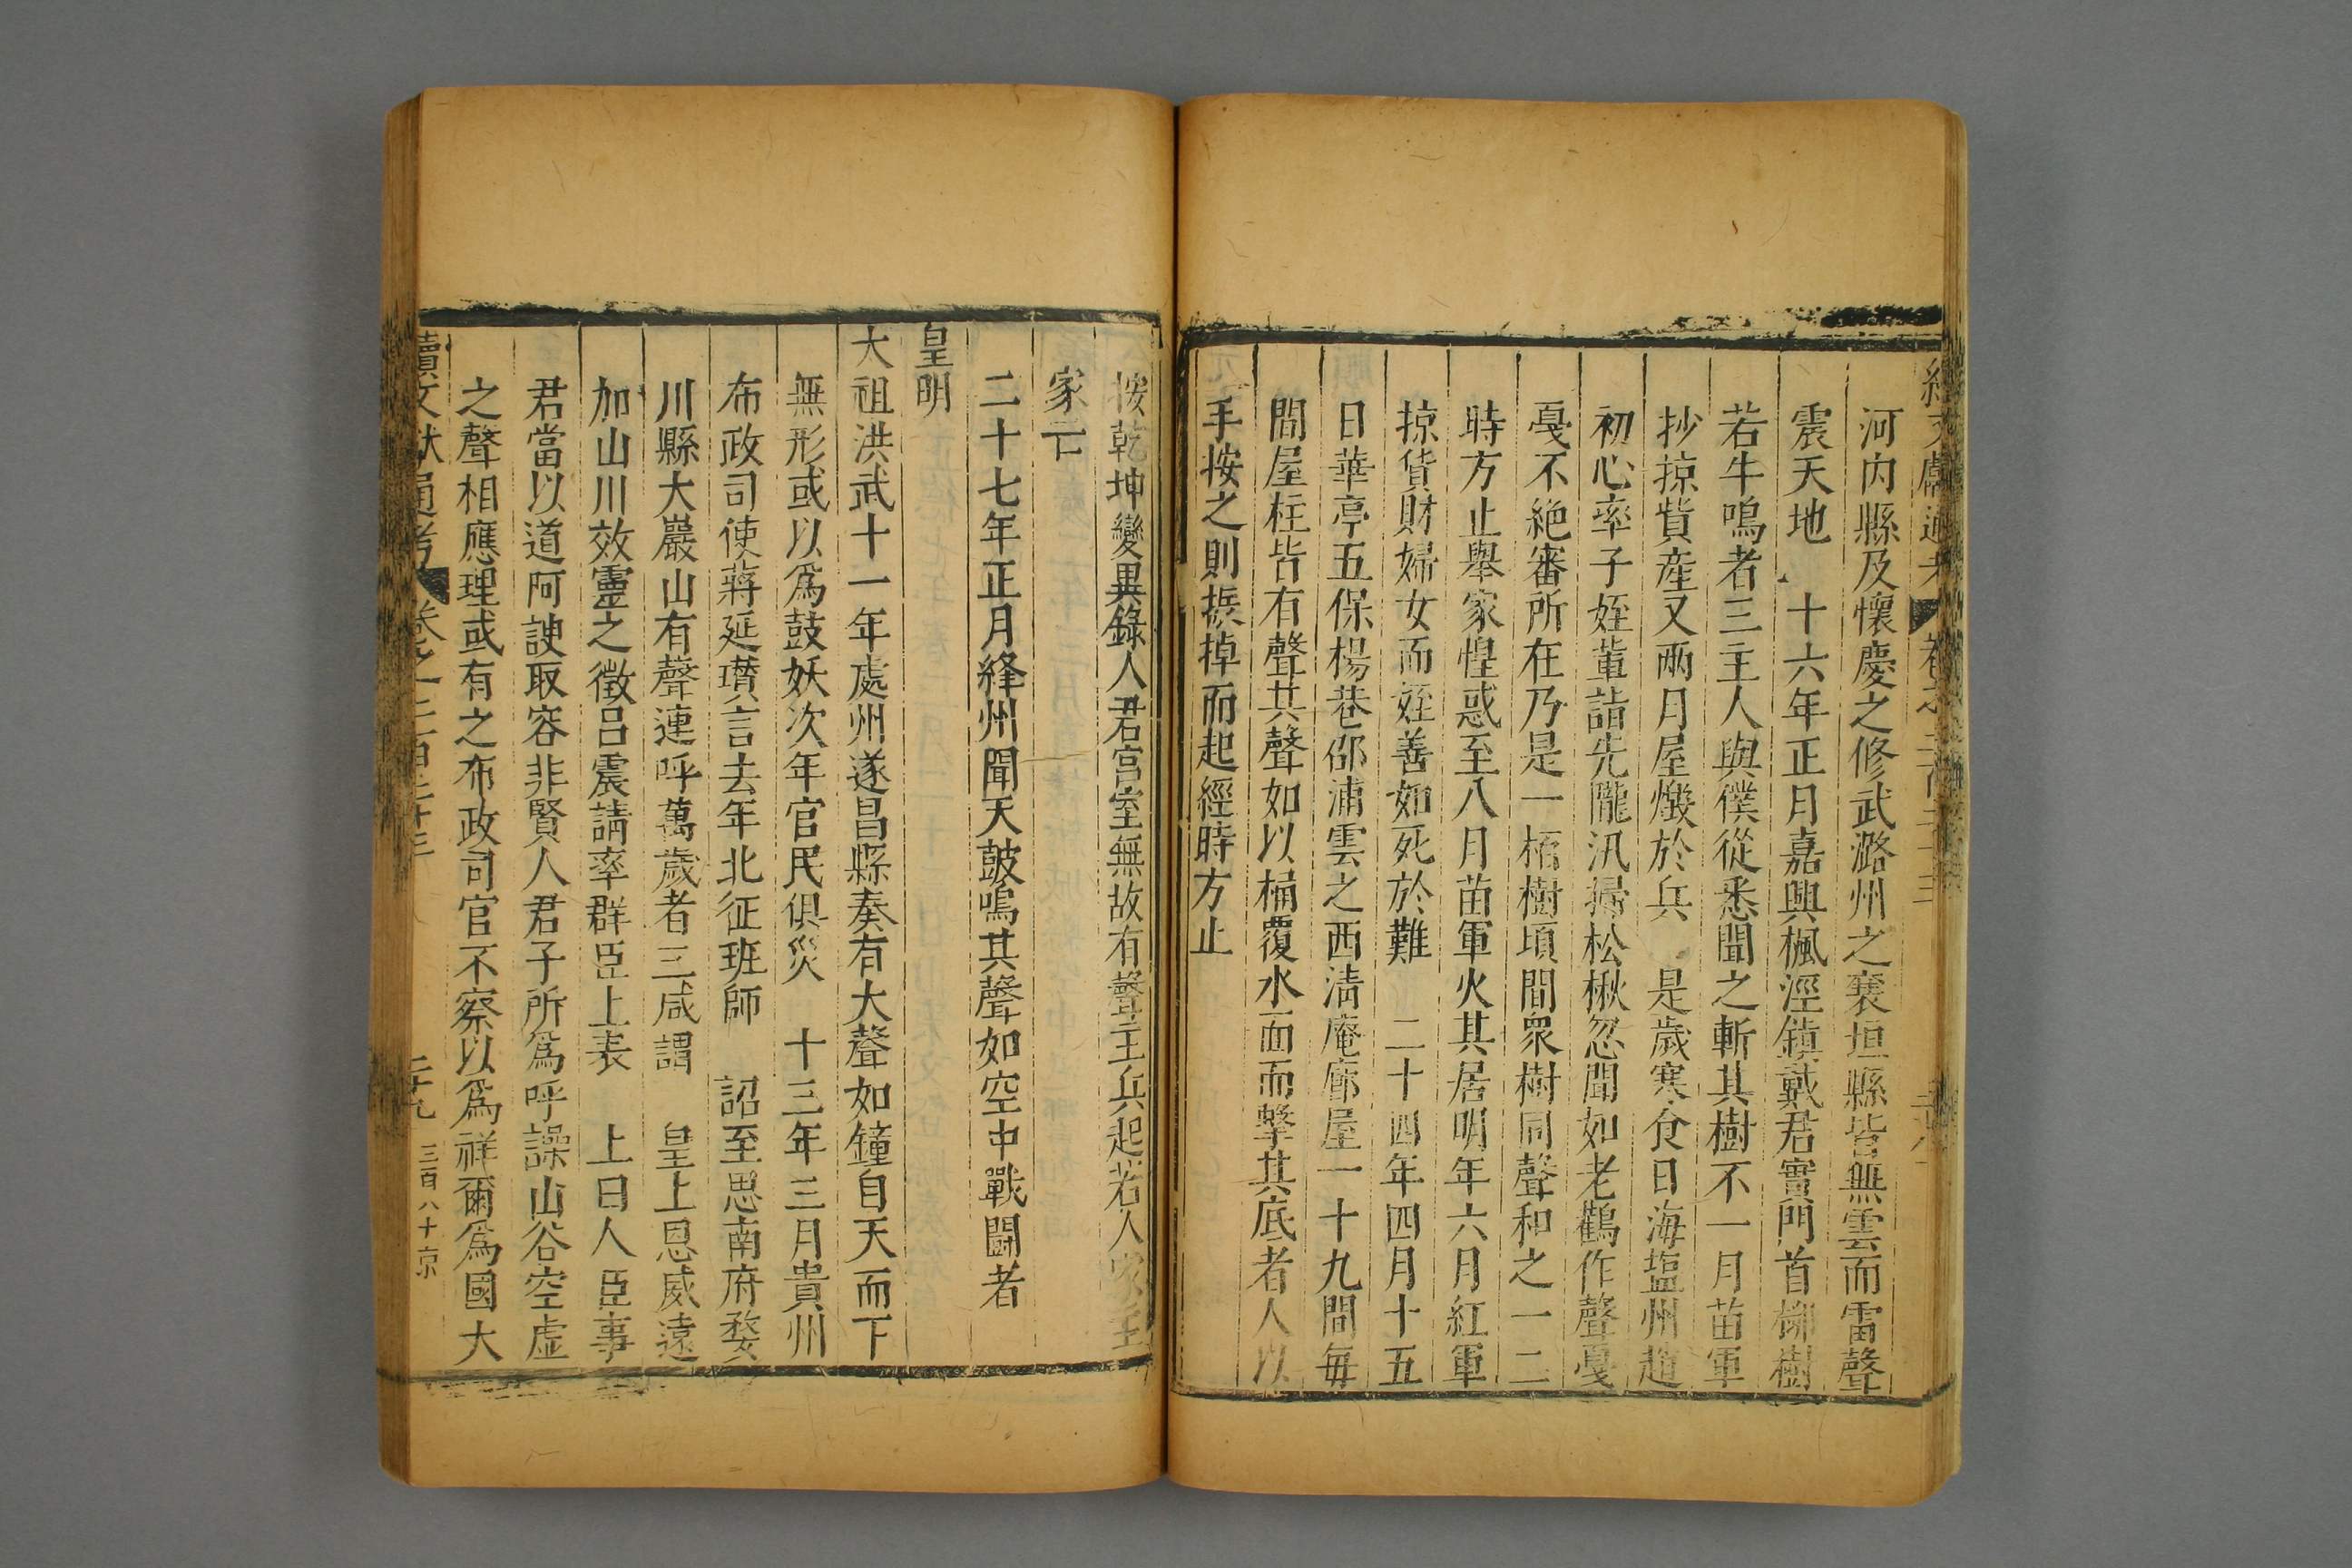 河内縣及懷慶之修武潞州之襄垣縣皆無雲而雷聲
震天地　十六年正月嘉興楓涇鎮戴君實門首柳樹
若牛鳴者三主人與僕從悉聞之斬其樹不一月苗軍
抄掠貲產又兩月屋燬於兵　是歲寒食日海塩州趙
初心率子姪輩詣先隴汛掃松楸忽聞如老鸛作聲戞
戞不絶審所在乃是一栢樹頃間衆樹同聲和之一二
時方止舉家惶惑至八月苗軍火其居明年六月紅軍
掠貨財婦女而姪善如死於難　二十四年四月十五
日華亭五保楊巷邵浦雲之西清庵廊屋一十九間毎
間屋柱皆有聲其聲如以桶覆水面而擊其底者人以
手按之則振掉而起經時方止
按乾坤變異錄人君宮室無故有聲主兵起若人家主
家亡
二十七年正月絳州聞天鼓鳴其聲如空中戰鬬者
皇明
大祖洪武十一年處州遂昌縣奏有大聲如鐘自天而下
無形或以爲鼓妖次年官民俱災　十三年三月貴州
布政司使蔣延瓚言去年北征班師　詔至思南府婺
川縣大巖山有聲連呼萬歲者三咸謂　皇上恩威遠
加山川效靈之徵呂震請率群臣上表　上曰人臣事
君當以道阿諛取容非賢人君子所爲呼譟山谷空虛
之聲相應理或有之布政司官不察以爲祥爾爲國大
續文獻通考　卷之二百二十三　二十九　三百八十　京